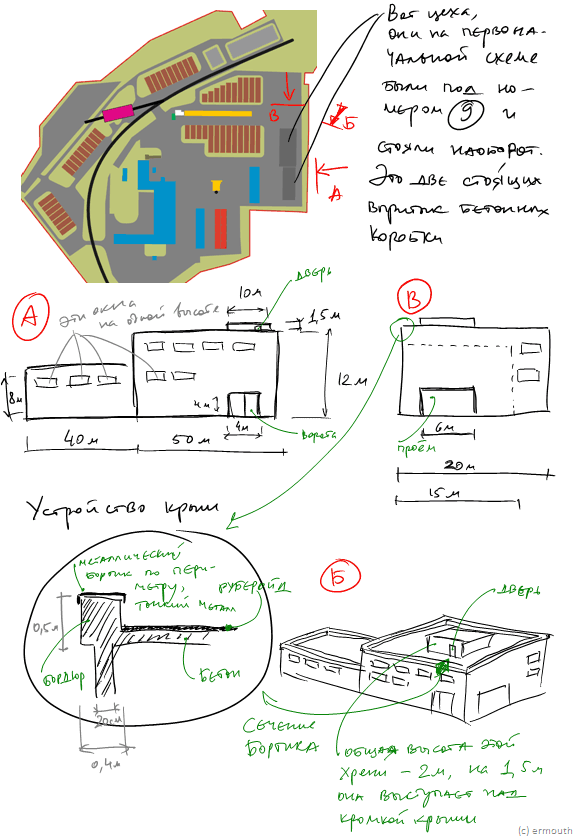 Вот цеха,
они на первона-
чальной схеме
были под но-
мером 9 и
стояли наоборот.
Это две стоящих
впритык бетонных
коробки
В
Б
А
А
эти окна
на одной высоте
10м
дверь
1,5м
8м
12м
4м
4м
ворота
40м
50м
В
проём
6м
20м
15м
Устройство крыши
металлический
бортик по пери-
метру,
тонкий металл
рубероид
0,5м
бордюр
бетон
20см
0,4м
Б
дверь
сечение
бортика
общая высота этой
хрени – 2м, на 1,5м
она выступает над
кромкой крыши
(c) ermouth